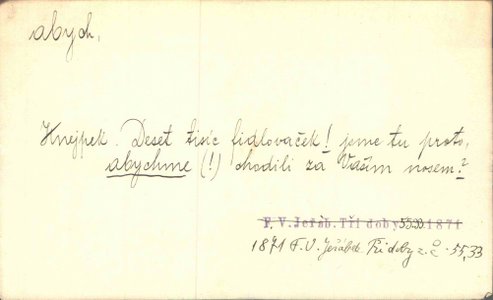 abych,
Knejpek. Deset tisíc fidlovaček! jsme tu proto,
abychme (!) chodili za Vaším nosem?
F. V. Jeřáb. Tři doby 55.33 1871
1871 F. V. Jeřábek Tři doby z. č. 55,33